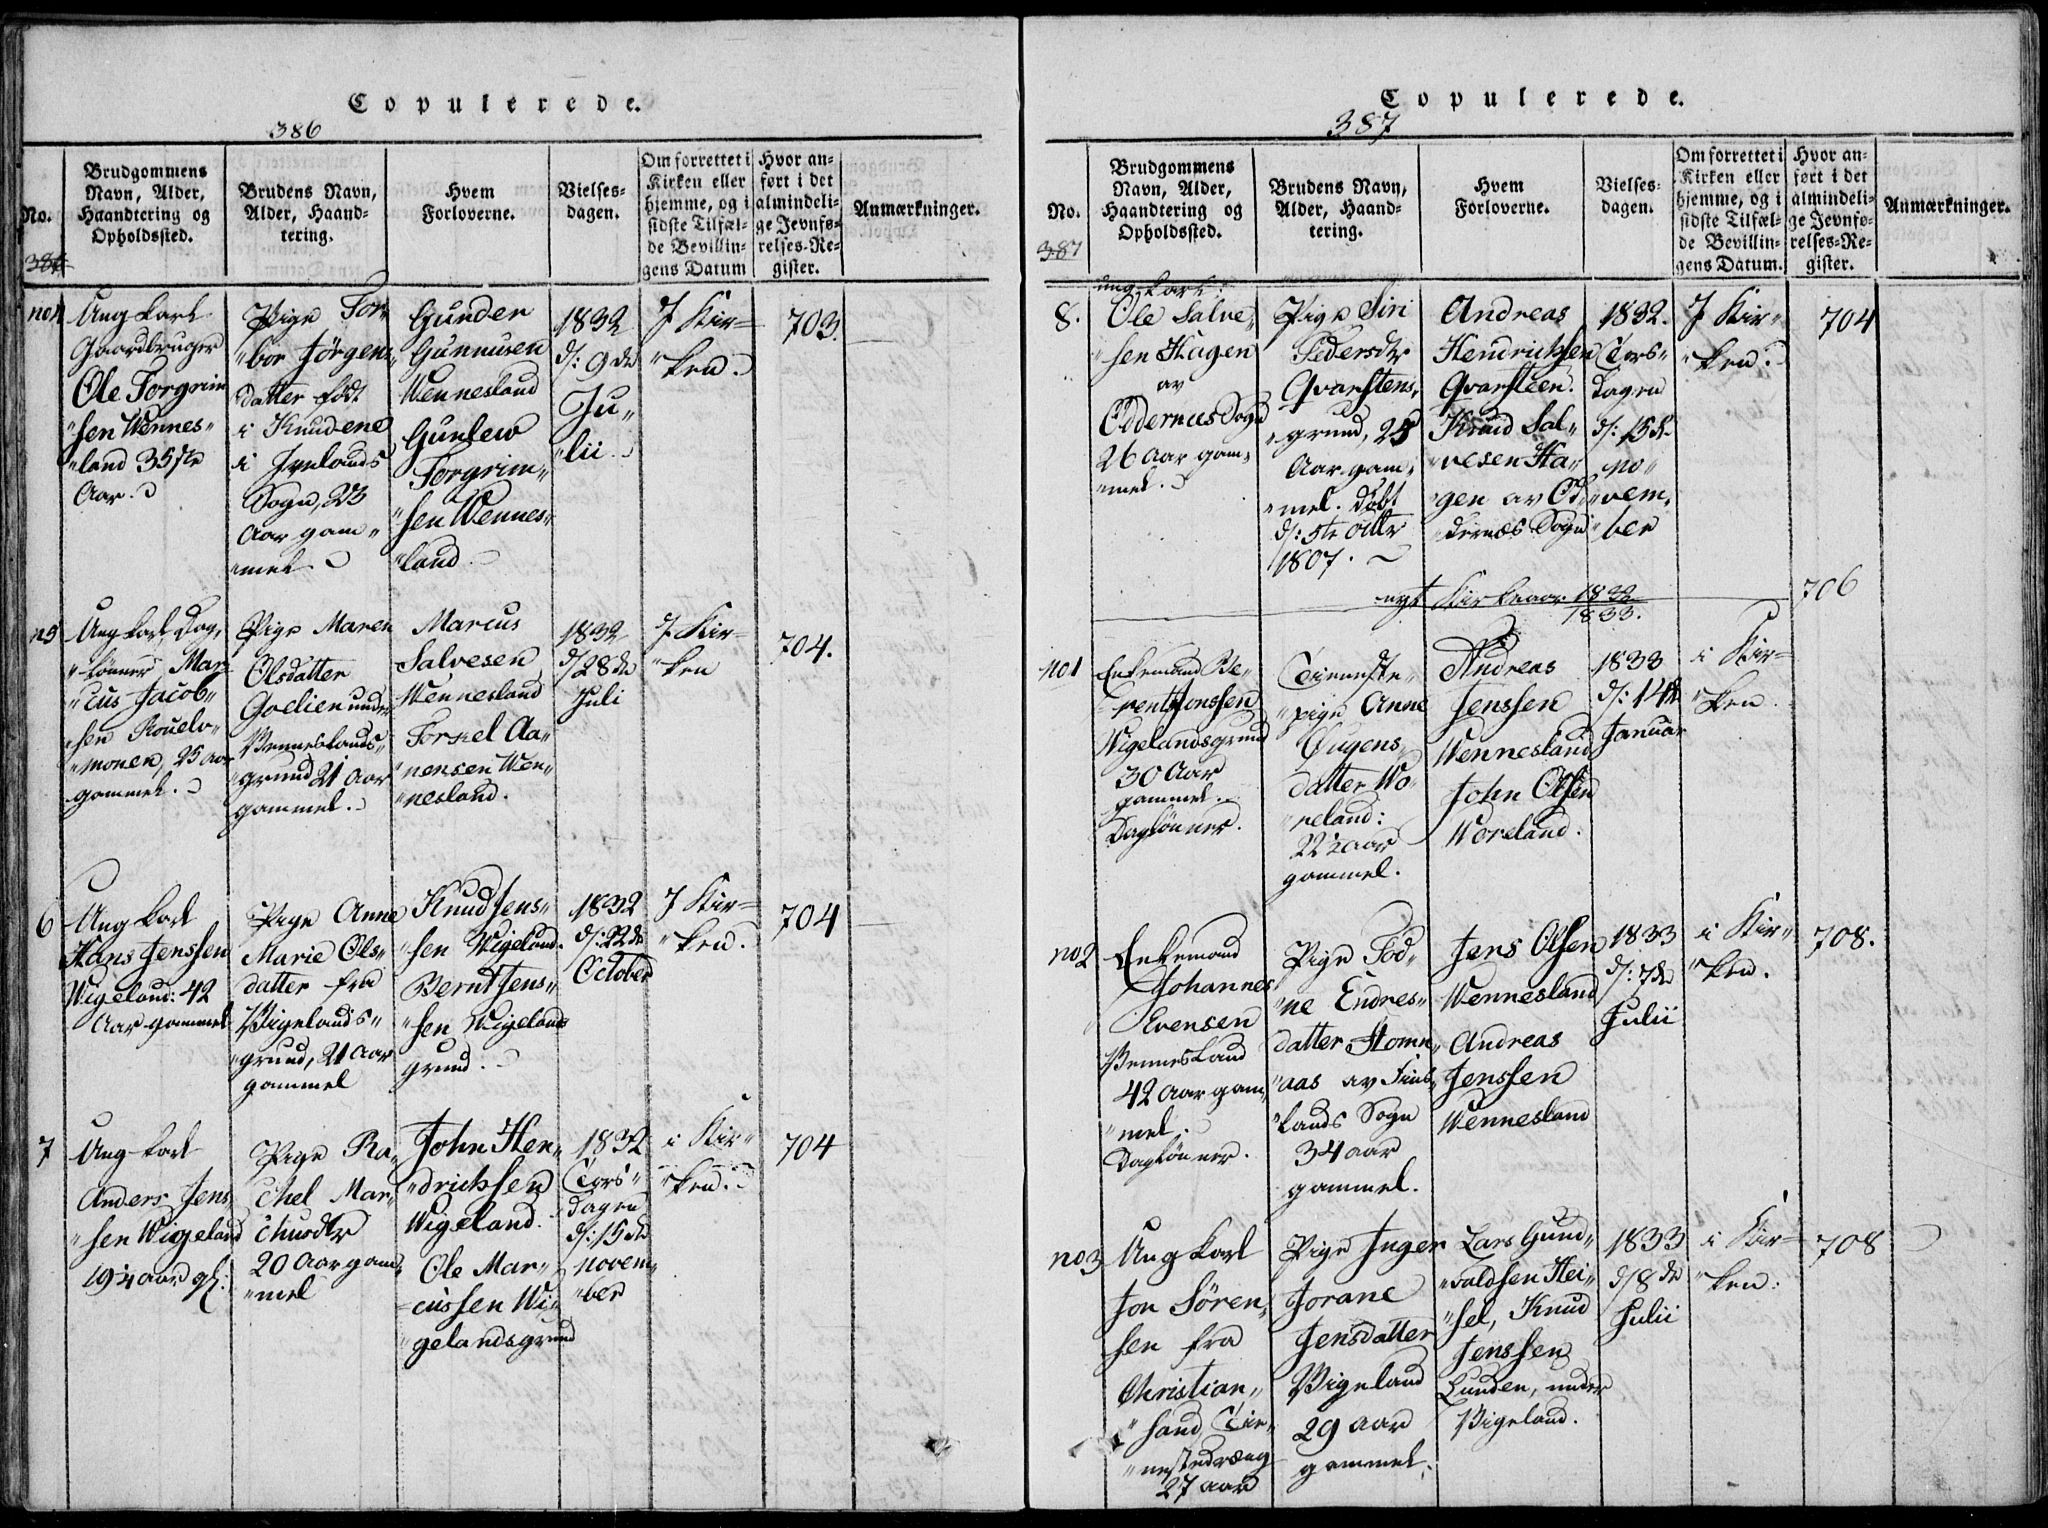 Copulerede.
386
No.
Brudgommens
Navn, Alder,
Haandtering og
Opholdssted.
Brudens Navn,
Alder, Haand-
tering.
Hvem
Forloverne.
Vielses-
dagen.
Om forrettet i
Kirken eller
hjemme, og i
sidste Tilfæl-
de Bevillin-
gens Datum
Hvor an-
ført i det
almindeli-
ge Jevnfø-
relses-Re-
gister.
Anmærkninger.
no 4
Ung karl
Gaardbruger
Ole Torgrim
"sen Wennes"
"land 35 te
Aar.
Pige Tor"
"bor Jörgens"
datter født
i Knudene
i Ivelands
Sogn, 23
Aar gam"
"mel
Gunder
Gunnusen
Wennesland
Gunlew
Torgrim"
"sen Wennes"
"land.
1832
d: 9 de
Ju"
"lii.
I Kir"
"ken.
703.
n 5
Ung karl, Dag"
"lönner Mar"
"cus Jacob"
"sen
"monen, 25 aar
gammel.
Pige Maren
Olsdatter
under
Venneslands"
"grund 21 Aar
gammel.
Marcus
Salvesen
Wennesland
Torkel Aa"
"nensen Wen"
"nesland.
1832
d/28 de
Juli
I Kir"
"ken
704.
6
Ung karl
Hans Jenssen
Wigeland: 42
Aar gammel
Pige Anne
Marie Ols"
datter fra
Vigelands"
"grund, 21 Aar
gammel
Knud Jens"
"sen Wigeland.
Bernt Jens"
"sen Wigelands
grund.
1832
d: 22 de
October
I Kir"
"ken.
704
7
Ung karl
Anders Jens
"sen Wigeland
19¼ aar gl:
Pige Ra"
"chel Mar"
"chusdtr
20 Aar gam"
"mel
John Hen"
"drichsen
Wigeland.
Ole Mar"
"cussen Wi"
"gelandsgrund
1832
Tors"
dagen
d: 15 de
novem"
"ber
i Kir"
"ken.
704
Copulerede.
387
No.
387
Brudgommens
Navn, Alder,
Haandtering og
Opholdssted.
Brudens Navn,
Alder, Haand-
tering.
Hvem
Forloverne.
Vielses-
dagen.
Om forrettet i
Kirken eller
hjemme, og i
sidste Tilfæl-
de Bevillin-
gens Datum.
Hvor an-
ført i det
almindeli-
ge Jevnfø-
relses-Re-
gister.
Anmærkninger.
8.
ung karl:
Ole Salve"
"sen Hagen
av
Oddernes Sogn
26 Aar gam"
"mel.
Pige Siri
Pedersdtr
Qvarstens"
"grund, 25
Aar gam"
"mel. Døbt
d: 5te octbr
1807.
Andreas
Hendrichsen
Qvarsteen.
Knud Sal"
"vesen Ha"
"gen av Od"
"dernes Sogn
1832.
Tors"
dagen
d: 15 de
no"
"vem"
"ber
I Kir"
"ken.
704
nyt Kirkeaar 1832
1833.
706
no 1
Enkemand Be"
"rent Jonssen
Wigelandsgrund
30 Aar
gammel.
Daglönner.
Tieneste"
"pige Anne
Öugens"
datter Wo"
"reland:
22½ aar
gammel.
Andreas
Jenssen
Wennesland
John Olsen
Woreland.
1833
d: 14 de
Januar
i Kir"
"ken.
no 2
Enkemand
Johannes
Evensen
Vennesland
42 Aar gam"
"mel.
Daglönner.
Pige Tod"
"ne Endres"
datter Hom"
"aas av Fins"
"lands Sogn
34 aar
gammel.
Jens Olsen
Wennesland
Andreas
Jenssen
Wennesland
1833
d: 7 de
Julii
i Kir"
"ken.
708.
no 3
Ung karl
Jon Sören"
sen fra
Christian"
"sand, Tie"
"nestedræng
27 aar
Pige Inger
Jorane
Jensdatter
Vigeland
29 aar
gammel.
Lars Gund"
"valdsen Hei"
"sel, Knud
Jenssen
Lunden, under
Vigeland.
1833
d/8 de
Julii
i Kir"
"ken:
708